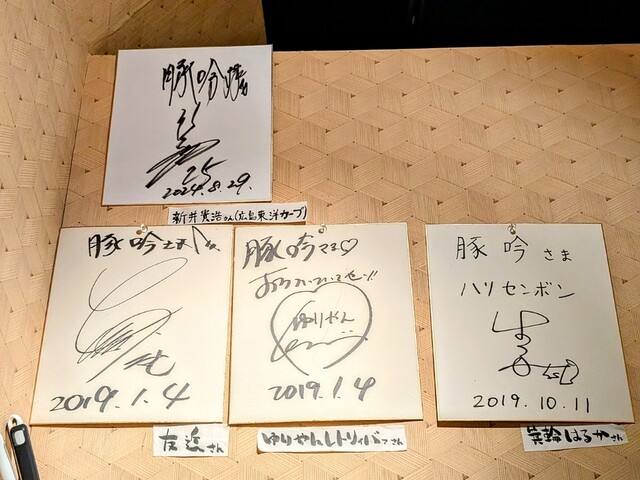 豚吟様
25
2024.8.29.
新井貴浩さん(広島東洋カープ)
豚吟さま
2019.1.4
友近さん
豚吟さま♡
ゆりやん
2019.1.4
ゆりやんレトリィバァさん
豚吟さま
ハリセンボン
はるか
2019.10.11
箕輪はるかさん